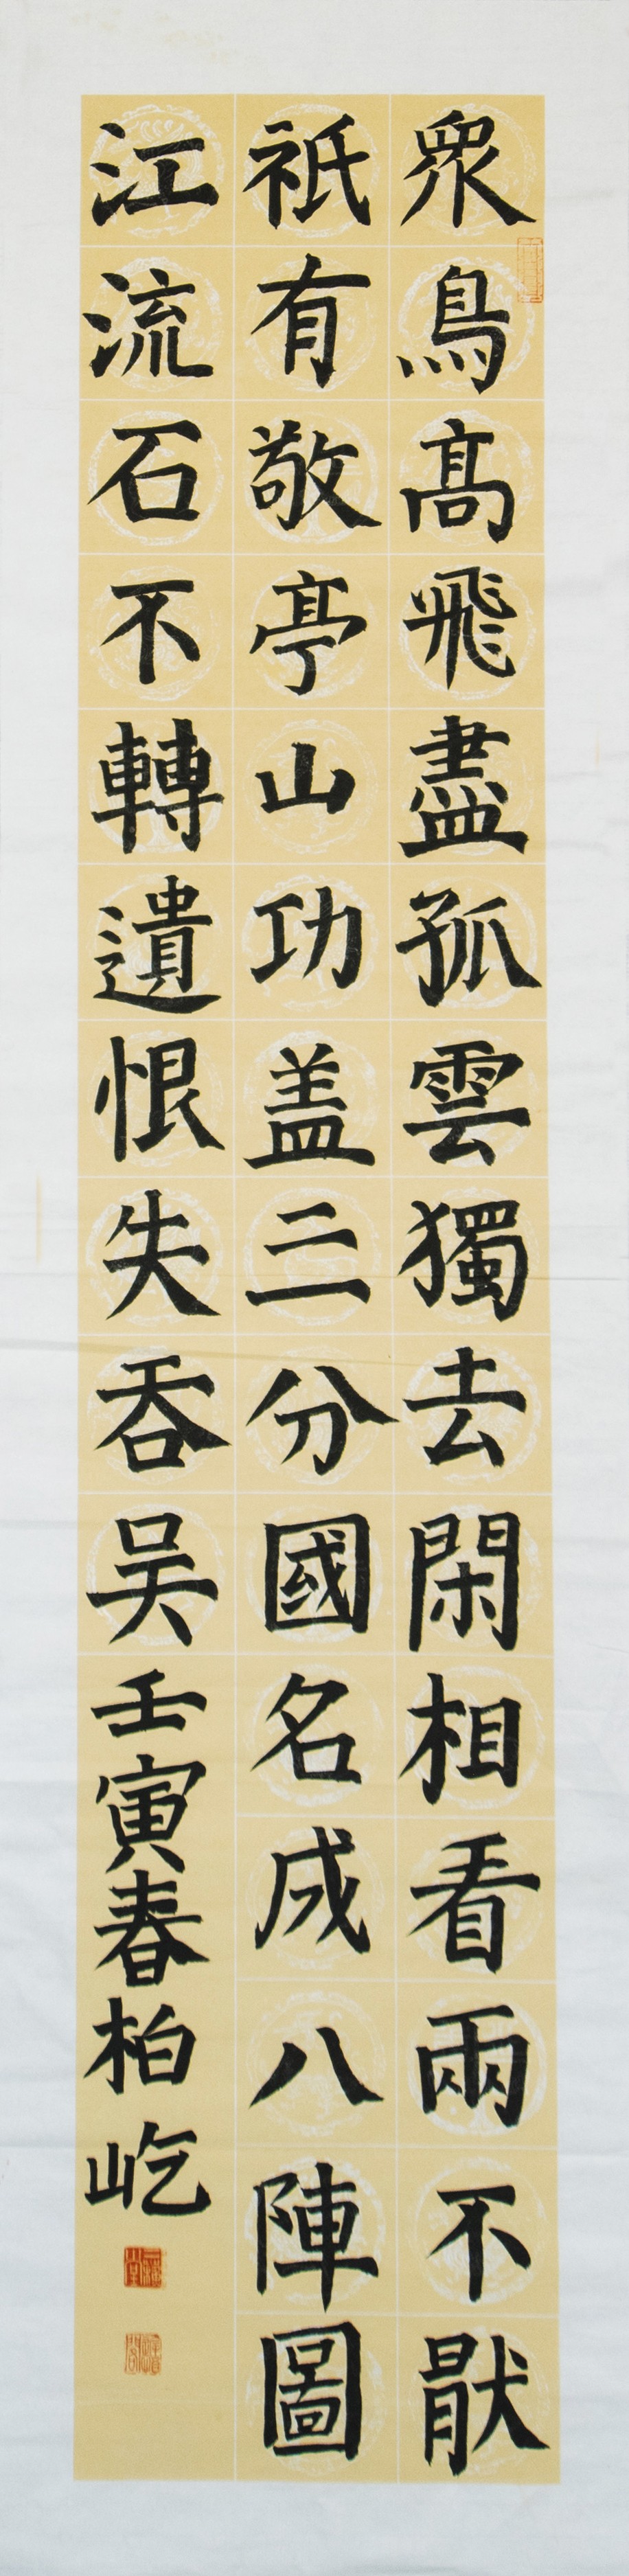 衆鳥高飛盡孤雲獨去閑相看兩不猒
祇有敬亭山功盖三分國名成八陣圖
江流石不轉遺恨失吞吴壬寅春柏屹